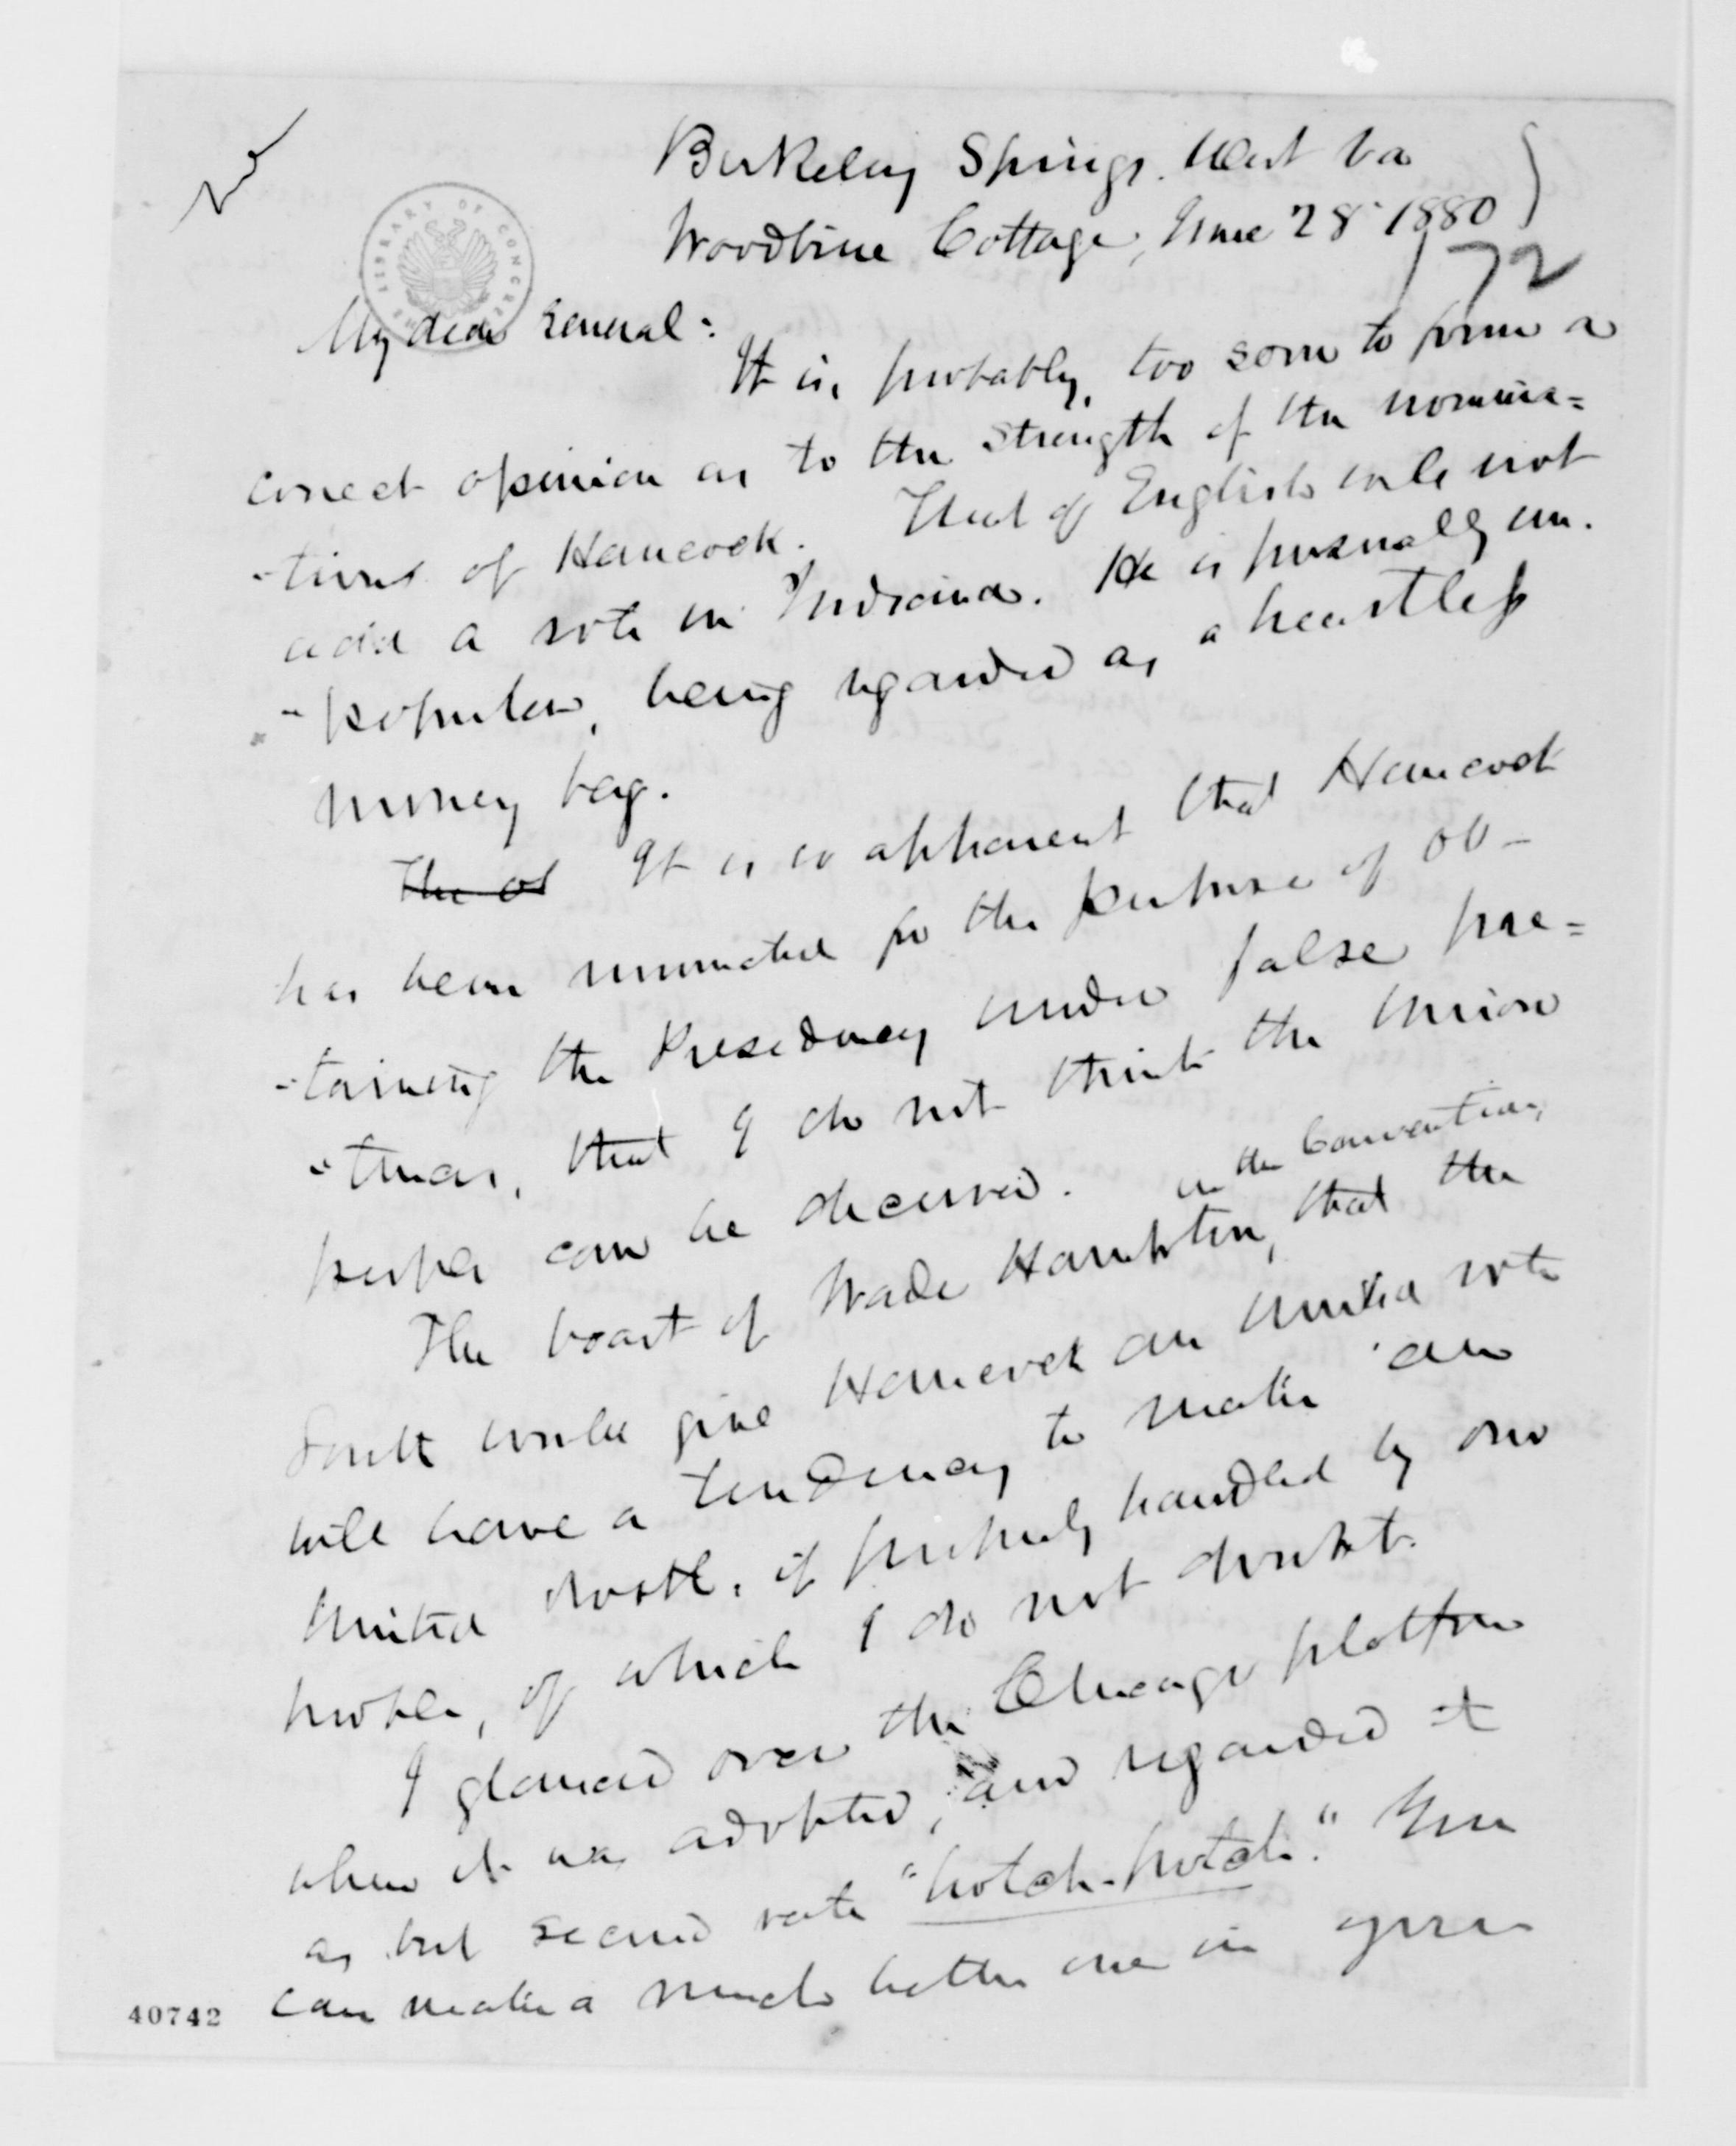 Berkeley Springs. West Va
Woodbine Cottage, June 28 1880
72
THE LIBRARY OF CONGRESS
My dear General:
It is, probably, too soon to form a
correct opinion as to the strength of the nomina=
-tions of Hancock. That of English will not
add a vote in Indiana. He is personally un.
-popular, being regarded as a heartless
money bag.
The It is so apparent that Hancock
has been nominated for the purpose of ob-
-taining the Presidency under false pre=
-tenses, that I do not think the Union
people can be deceived.
in the Convention,
The boast of Wade Hampton, that the
South would give Hancock an united vote
will have a tendency to make an
united North, if properly handled by our
people, of which I do not doubt.
I glanced over the Chicago platform
when it was adopted, and regarded it
as but second rate "hotch-potch." You
can make a much better one in your
40742